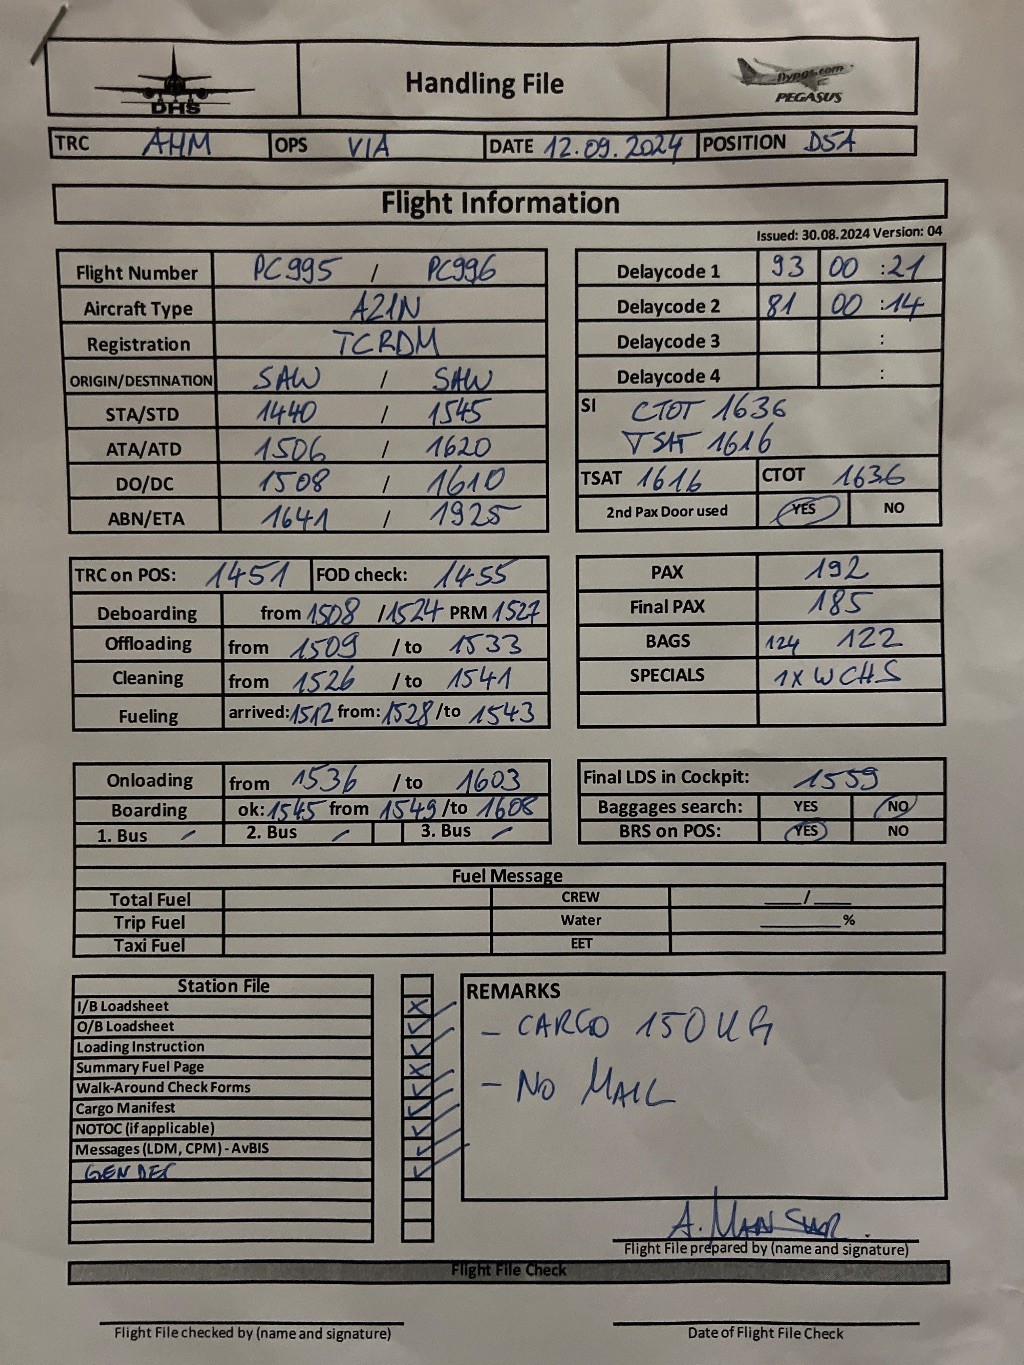 DHS
Handling File
flypgs.com
PEGASUS
TRC AHM OPS VIA DATE 12.09.2024 POSITION D5A
Flight Information
Issued: 30.08.2024 Version: 04
Flight Number PC995 / PC996
Aircraft Type A21N
Registration TCRDM
ORIGIN/DESTINATION SAW / SAW
STA/STD 1440 / 1545
ATA/ATD 1506 / 1620
DO/DC 1508 / 1610
ABN/ETA 1641 / 1925
Delaycode 1 93 00 :21
Delaycode 2 81 00 :14
Delaycode 3 :
Delaycode 4 :
SI CTOT 1636
TSAT 1616
TSAT 1616 CTOT 1636
2nd Pax Door used YES NO
TRC on POS: 1451 FOD check: 1455
Deboarding from 1508 /1524 PRM 1527
Offloading from 1509 /to 1533
Cleaning from 1526 /to 1541
Fueling arrived:1512 from:1528/to 1543
PAX 192
Final PAX 185
BAGS 124 122
SPECIALS 1X WCHS
Onloading from 1536 /to 1603
Boarding ok:1545 from 1549/to 1608
1. Bus – 2. Bus – 3. Bus –
Final LDS in Cockpit: 1559
Baggages search: YES NO
BRS on POS: YES NO
Fuel Message
Total Fuel CREW ____/____
Trip Fuel Water ________%
Taxi Fuel EET
Station File
I/B Loadsheet
O/B Loadsheet
Loading Instruction
Summary Fuel Page
Walk-Around Check Forms
Cargo Manifest
NOTOC (if applicable)
Messages (LDM, CPM) - AvBIS
GENDEC
REMARKS
– CARGO 150KG
– NO MAIL
A. MANSUR
Flight File prepared by (name and signature)
Flight File Check
Flight File checked by (name and signature)
Date of Flight File Check